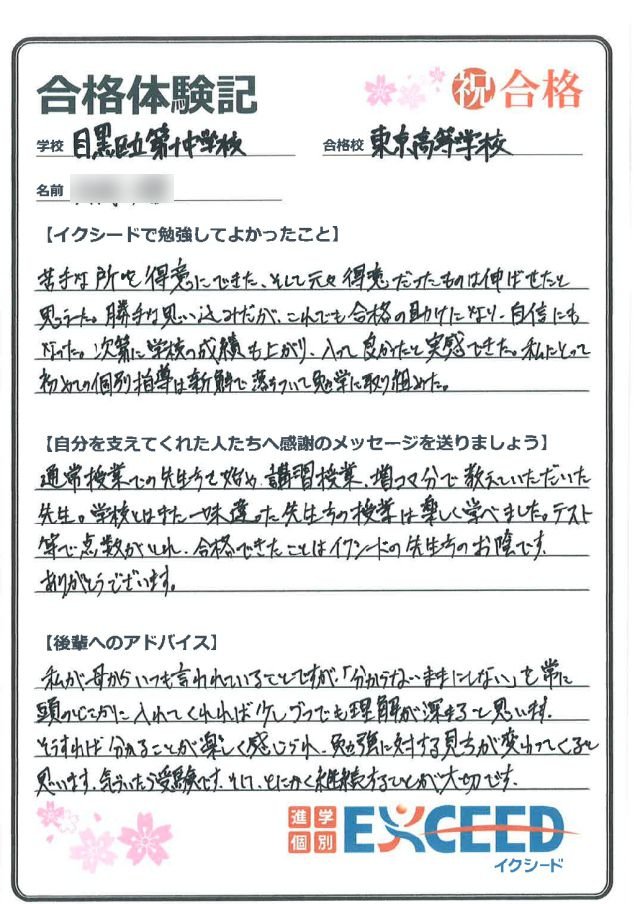 合格体験記
祝 合格
学校 目黒区立第十中学校
合格校 東京高等学校
名前
【イクシードで勉強してよかったこと】
苦手な所を得意にできた、そして元々得意だったものは伸ばせたと
思った。勝手な思い込みだが、これでも合格の助けになり、自信にも
なった。次第に学校の成績も上がり、入って良かったと実感できた。私にとって
初めての個別指導は新鮮で落ちついて勉学に取り組めた。
【自分を支えてくれた人たちへ感謝のメッセージを送りましょう】
通常授業での先生方を始め、講習授業、増コマ分で教えていただいた
先生。学校とはまた一味違った先生方の授業は楽しく学べました。テスト
等で点数がとれ、合格できたことはイクシードの先生方のお陰です。
ありがとうございます。
【後輩へのアドバイス】
私が母からいつも言われていることですが、「分からないままにしない」を常に
頭のどこかに入れてくれれば少しづつでも理解が深まると思います。
そうすれば分かることが楽しく感じられ、勉強に対する見方が変わってくると
思います。気づいたら受験です。そして、とにかく継続することが大切です。
進学
個別
EXCEED
イクシード